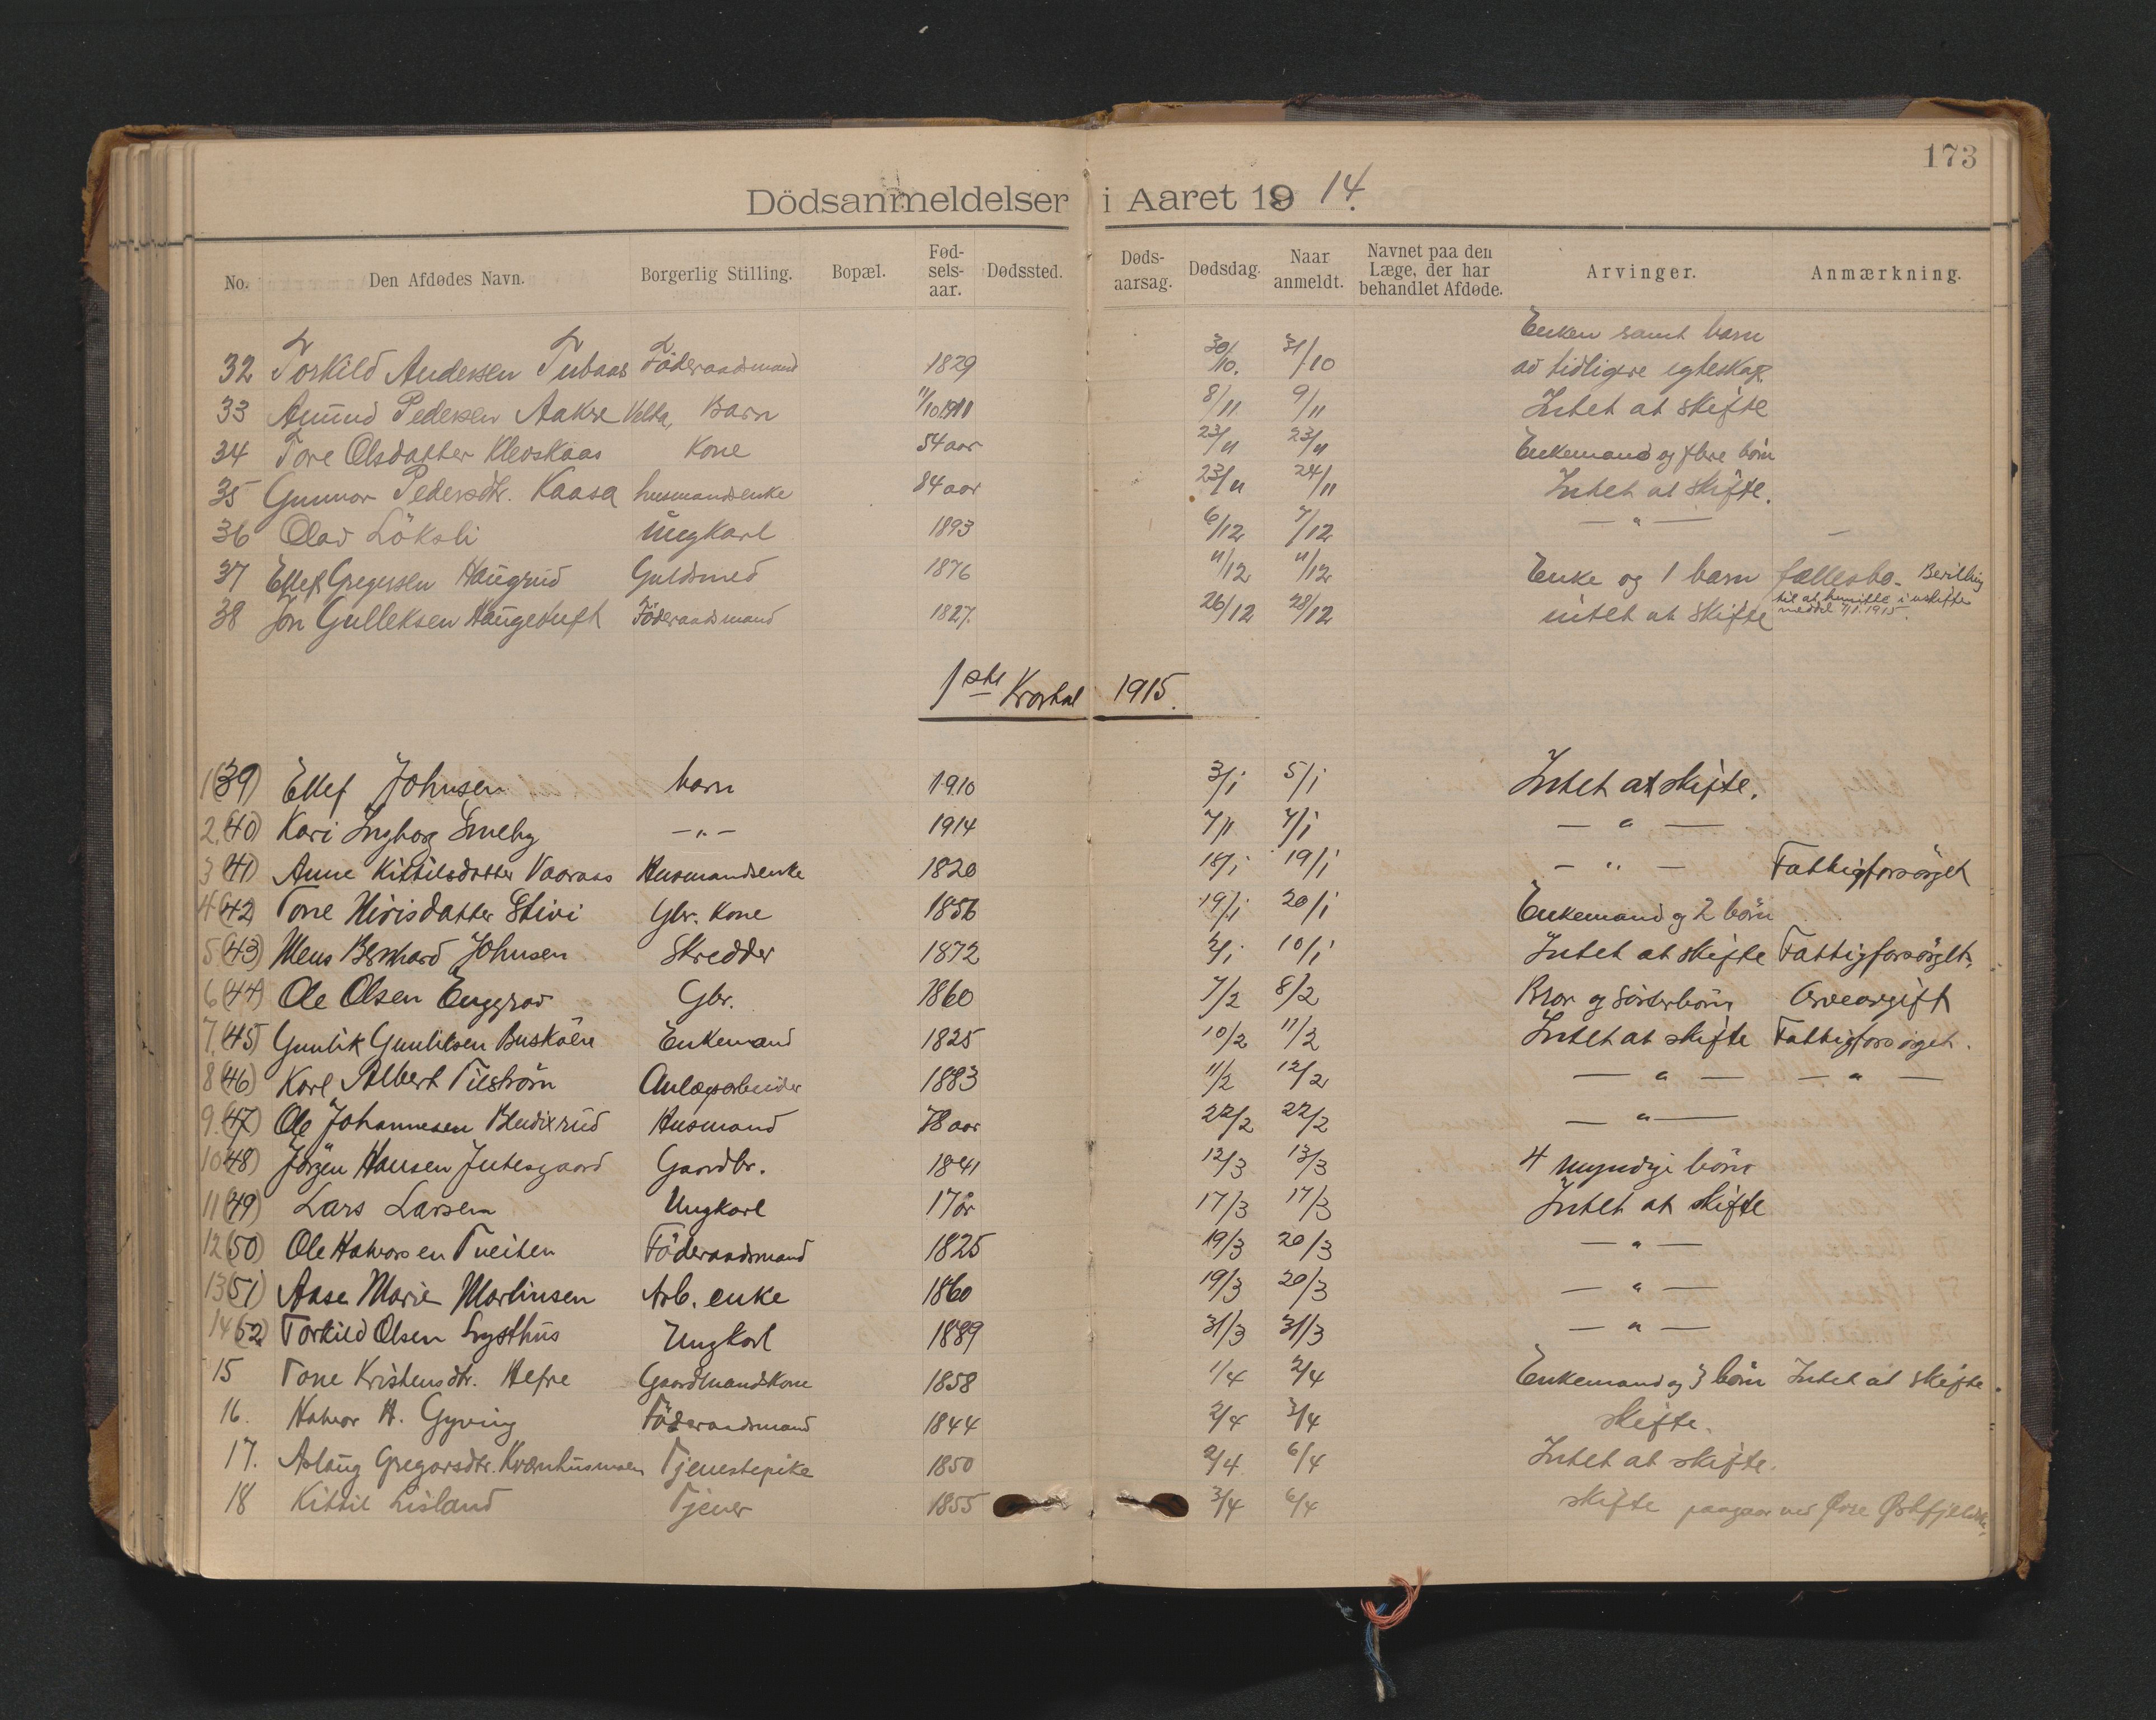 173
Dödsanmeldelser i Aaret 1914.
No. Den Afdødes Navn. Borgerlig Stilling. Bopæl. Fød-sels-aar. Dødssted. Døds-aarsag. Dødsdag. Naar anmeldt. Navnet paa den Læge, der har behandlet Afdøde. Arvinger. Anmærkning.
Enken samt barn
32 Torkild Andersen Tubaas Föderaadsmand 1829 30/10. 31/10 av tidligere egteskap.
33 Amund Pedersen Aakre Barn 11/10 1911 8/11 9/11 Intet at skifte
34 Tore Olsdatter Kleoskaas Kone 54 aar 23/11 23/11 Enkemand og flere börn
35 Gunnar Pedersdtr. Kaasa husmandsenke 84 aar 23/11 24/11 Intet at skifte.
36 Olav Löksli Ungkarl 1893 6/12 7/12 — " —
37 Ellef Gregersen Haugrud Guldsmed 1876 11/12 11/12 Enke og 1 barn fællesbo. Bevilling
til at hensitte i uskifte
38 Jon Gulleksen Haugetuft Föderaadsmand 1827. 26/12 28/12 intet at skifte meddel 7/1. 1915.
1ste Kvartal 1915.
1 (39) Ellef Johnsen barn 1910 3/1 5/1 Intet at skifte.
2. (40) Kari Ingborg Smeby — " — 1914 7/1 7/1 — " —
3 (41) Anne Kittilsdatter Vaaraas Husmandsenke 1820 18/1 19/1 — " — Fattigforsörget
4 (42) Tone Nirisdatter Stivi Gbr. Kone 1856 19/1 20/1 Enkemand og 2 börn
5 (43) Mens Bernhard Johnsen Skredder 1872 2/1 10/1 Intet at skifte Fattigforsörget.
6 (44) Ole Olsen Enggrav Gbr. 1860 7/2 8/2 Bror og sösterbörn Arveavgift
7. (45) Gunlik Gunliksen Buskåen Enkemand 1825 10/2 11/2 Intet at skifte Fattigforsörget.
8 (46) Karl Albert Tilström Anlægsarbeider 1883 11/2 12/2 — " — — " —
9. (47) Ole Johannesen Bendixrud Husmand 78 aar 22/2 22/2 — " —
10 (48) Jörgen Hansen Jutesgaard Gaardbr. 1841 12/3 13/3 4 myndige börn
11 (49) Lars Larsen Ungkarl 17 år 17/3 17/3 Intet at skifte
12 (50) Ole Halvorsen Tveiten Föderaadsmand 1825 19/3 20/3 — " —
13 (51) Aase Marie Martinsen Arb. enke 1860 19/3 20/3 — " —
14 (52) Torkild Olsen Lysthus Ungkarl 1889 31/3 31/3 — " —
15 Tone Kristensdtr. Hefre Gaardmandskone 1858 1/4 2/4 Enkemand og 3 börn Intet at skifte.
16. Halvor H. Gyving Föderaadsmand 1844 2/4 3/4 skifte.
17. Aslaug Gregarsdtr. Kvernhusmoen Tjenestepike 1850 2/4 6/4 Intet at skifte.
18 Kittil Lisland Tjener 1855 3/4 6/4 skifte paagaar ved Övre